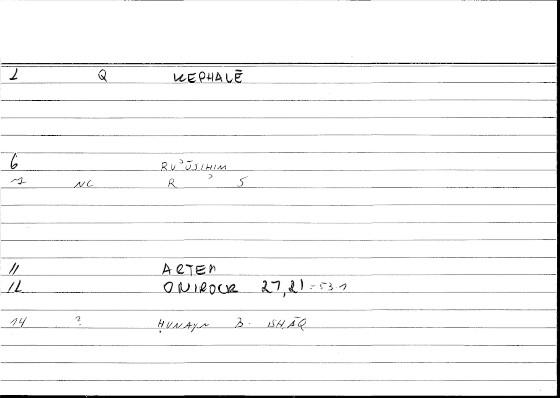 1 Q KEPHALĒ
6 RUʾŪSIHIM
~1 NC R ʾ S
11 ARTEM
12 ONIROCR 27,21 = 53 1
14 ? ḤUNAYN B. ISḤĀQ